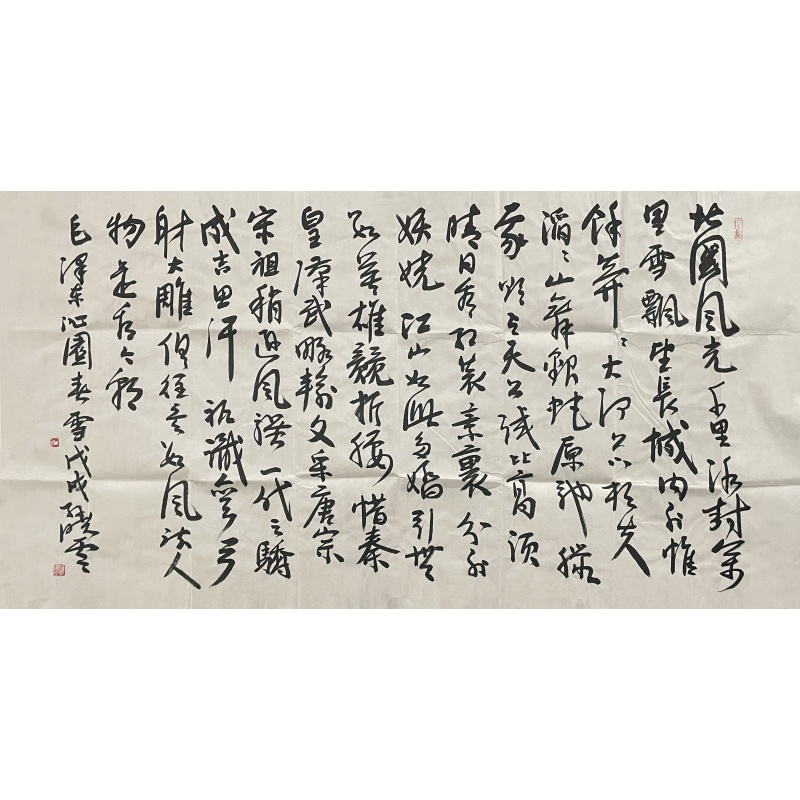 北國風光千里冰封萬
里雪飄望長城內外惟
餘莽々大河上下頓失
滔々山舞銀蛇原馳蠟
象欲與天公試比高須
晴日看紅裝素裹分外
妖嬈江山如此多嬌引無
數英雄競折腰惜秦
皇漢武略輸文采唐宗
宋祖稍遜風騷一代天驕
成吉思汗祇識彎弓
射大雕俱往矣數風流人
物還看今朝
毛澤東沁園春雪戊戌曉雲